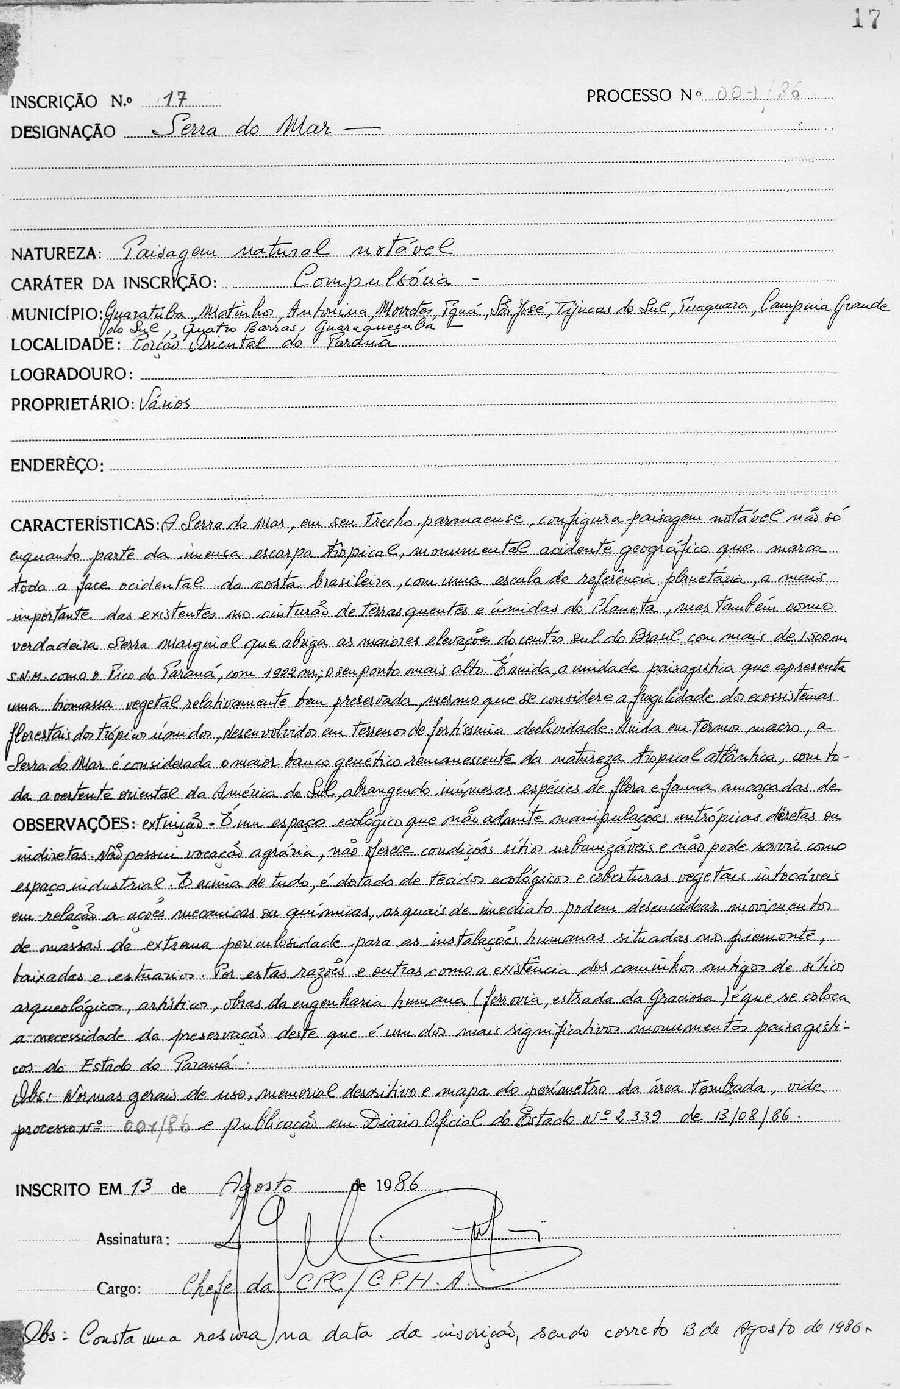 17
INSCRIÇÃO N.º 17 PROCESSO Nº 001/86
DESIGNAÇÃO Serra do Mar —
NATUREZA: Paisagem natural notável
CARÁTER DA INSCRIÇÃO: Compulsória -
MUNICÍPIO: Guaratuba, Matinhos, Antonina, Morretes, São José, Tijucas do Sul, Piraquara, Campina Grande
do Sul, Quatro Barras, Guaraqueçaba
LOCALIDADE: Porção Oriental do Paraná
LOGRADOURO:
PROPRIETÁRIO: Vários
ENDERÊÇO:
CARACTERÍSTICAS: A Serra do Mar, em seu trecho paranaense, configura paisagem notável não só
enquanto parte da imensa escarpa tropical, monumental acidente geográfico que marca
toda a face ocidental da costa brasileira, com uma escala de referência planetária, a mais
importante das existentes no cinturão de terras quentes e úmidas do Planeta, mas também como
verdadeira Serra Marginal que abriga as maiores elevações do centro sul do Brasil com mais de 1.500m
s.n.m. como o Pico do Paraná, com 1922 m, o seu ponto mais alto. É ainda, a unidade paisagística que apresenta
uma biomassa vegetal relativamente bem preservada, mesmo que se considere a fragilidade dos ecossistemas
florestais dos trópicos úmidos, desenvolvidos em terrenos de fortíssima declividade. Ainda em termos macro, a
Serra do Mar é considerada o maior banco genético remanescente da natureza tropical atlântica, com to-
da a vertente oriental da América do Sul, abrangendo inúmeras espécies de flora e fauna ameaçadas de
OBSERVAÇÕES: extinção. É um espaço ecológico que não admite manipulações antrópicas diretas ou
indiretas. Não possui vocação agrária, não oferece condições sítios urbanizáveis e não pode servir como
espaço industrial. E acima de tudo, é dotado de tecidos ecológicos e coberturas vegetais intocáveis
em relação a ações mecânicas ou químicas, as quais de imediato podem desencadear movimentos
de massas de extrema periculosidade para as instalações humanas situadas no piemonte,
baixadas e estuários. Por estas razões e outras como a existência dos caminhos antigos de sítios
arqueológicos, artísticos, obras da engenharia humana (ferrovia, estrada da Graciosa) é que se coloca
a necessidade da preservação deste que é um dos mais significativos monumentos paisagísti-
cos do Estado do Paraná.
Obs: Normas gerais de uso, memorial descritivo e mapa do perímetro da área tombada, vide
processo Nº 001/86 e publicação em Diario Oficial do Estado Nº 2.339 de 13/08/86.
INSCRITO EM 13 de Agosto de 1986
Assinatura:
Cargo: Chefe da CPC/C.P.H.A.
Obs: Consta uma rasura na data da inscrição, sendo correto 13 de Agosto de 1986.